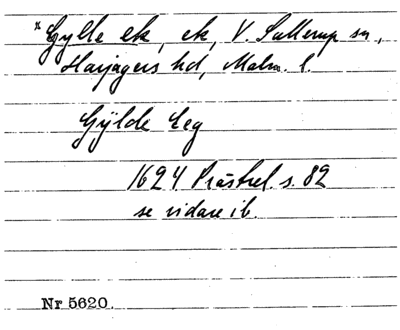 *Gylle ek, ek, V. Sallerup sn,
Harjagers hd, Malm. l.
Gÿlde Eeg
1624 Prästrel. s. 82
se vidare ib.
Nr 5620.